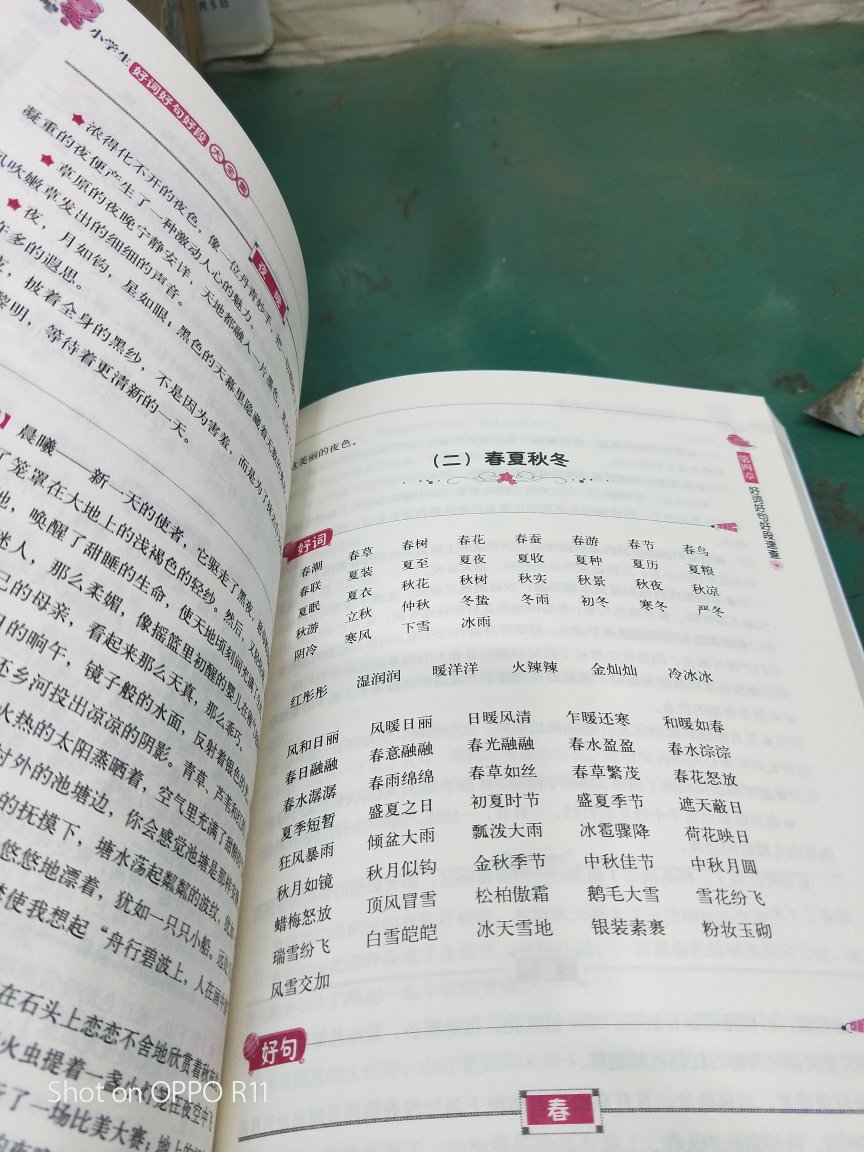 小学生 好词好句好段 大全集
夜晚
★浓得化不开的夜色，像一位丹青妙手，把一切
凝重的夜便产生了一种激动人心的魅力。
★草原的夜晚宁静安详，天地都融入一片墨色，
吹嫩草发出的细细的声音。
★夜，月如钩，星如眼；黑色的天幕里隐藏着
多的遐思。
披着全身的黑纱，不是因为害羞，而是为了
黎明，等待着更清新的一天。
晨曦——新一天的使者，它驱走了黑夜，
了笼罩在大地上的浅褐色的轻纱。然后，
地，唤醒了甜睡的生命，使天地顷刻间充满了
迷人，那么柔媚，像摇篮里初醒的婴儿在
己的母亲，看起来那么天真，那么乖巧。
的晌午，镜子般的水面，反射着银色的
还乡河投出凉凉的阴影。青草、芦苇和
火热的太阳蒸晒着，空气里充满了甜醉的
村外的池塘边，你会感觉池塘是那样
的抚摸下，塘水荡起粼粼的波纹，犹如
悠悠地漂着，犹如一只只小船。
使我想起“舟行碧波上，人在画中
在石头上恋恋不舍地欣赏着秋
火虫提着一盏小灯笼在夜空中飞
行了一场比美大赛；地上的
美丽的夜色。
（二）春夏秋冬
第四章 好词好句好段速查
好词
春潮 春草 春树 春花 春蚕 春游 春节 春鸟
春联 夏装 夏至 夏夜 夏收 夏种 夏历 夏粮
夏眠 夏衣 秋花 秋树 秋实 秋景 秋夜 秋凉
秋游 立秋 仲秋 冬蛰 冬雨 初冬 寒冬 严冬
阴冷 寒风 下雪 冰雨
红彤彤 湿润润 暖洋洋 火辣辣 金灿灿 冷冰冰
风和日丽 风暖日丽 日暖风清 乍暖还寒 和暖如春
春日融融 春意融融 春光融融 春水盈盈 春水淙淙
春水潺潺 春雨绵绵 春草如丝 春草繁茂 春花怒放
夏季短暂 盛夏之日 初夏时节 盛夏季节 遮天蔽日
狂风暴雨 倾盆大雨 瓢泼大雨 冰雹骤降 荷花映日
秋月如镜 秋月似钩 金秋季节 中秋佳节 中秋月圆
蜡梅怒放 顶风冒雪 松柏傲霜 鹅毛大雪 雪花纷飞
瑞雪纷飞 白雪皑皑 冰天雪地 银装素裹 粉妆玉砌
风雪交加
好句
春
Shot on OPPO R11